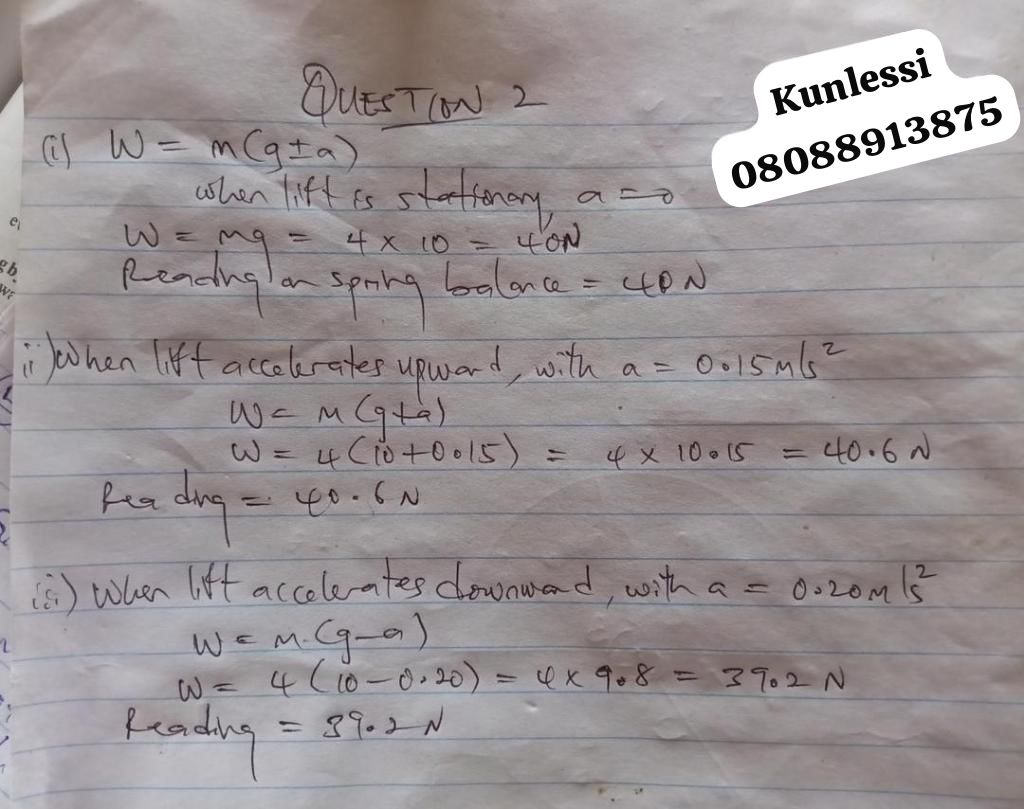 QUESTION 2
Kunlessi
08088913875
(i) W = m(g±a)
when lift is stationary, a = 0
W = mg = 4 × 10 = 40N
Reading on spring balance = 40N
ii) When lift accelerates upward, with a = 0.15m/s²
W = m(g+a)
W = 4(10+0.15) = 4 × 10.15 = 40.6N
Reading = 40.6N
iii) When lift accelerates downward, with a = 0.20m/s²
W = m.(g-a)
W = 4(10-0.20) = 4×9.8 = 39.2N
Reading = 39.2N